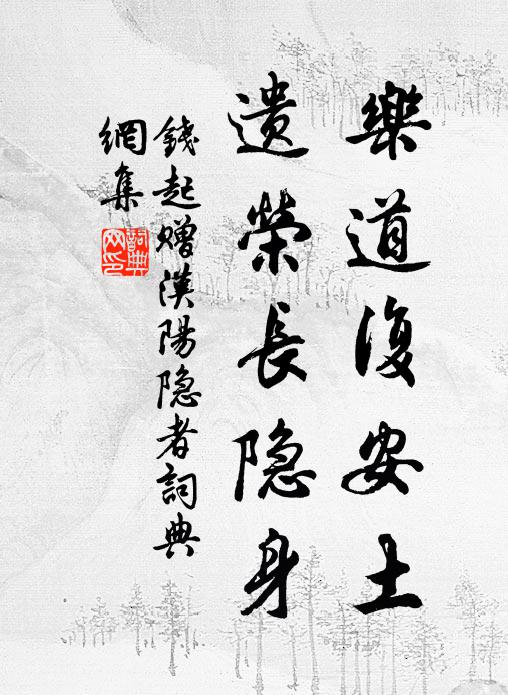 樂道復安土
遺榮長隐身
錢起赠漢陽隐者詞典
網集
詞典
网印